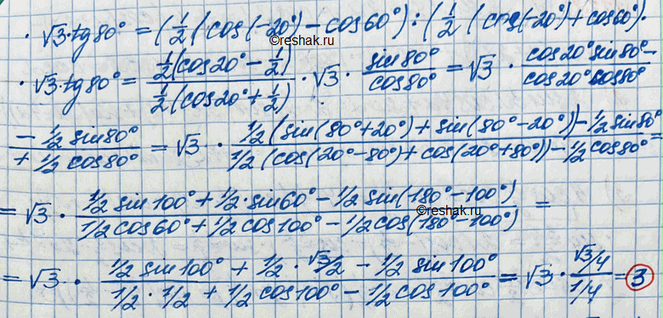 · √3·tg80° = (½(cos(-20°) - cos60°) : (½(cos(-20°) + cos60°).
©reshak.ru
· √3·tg80° = ½(cos20° - ½) / ½(cos20° + ½) · √3 · sin80° / cos80° = √3 · cos20° sin80° - / cos20° cos80°
- ½ sin80° / + ½ cos80° = √3 · ½(sin(80°+20°) + sin(80°-20°)) - ½ sin80° / ½(cos(20°-80°) + cos(20°+80°)) - ½ cos80° =
= √3 · ½ sin100° + ½·sin60° - ½ sin(180°-100°) / ½ cos60° + ½ cos100° - ½ cos(180°-100°) =
©reshak.ru
= √3 · ½ sin100° + ½ · √3/2 - ½ sin100° / ½ · ½ + ½ cos100° - ½ cos100° = √3 · √3/4 / 1/4 = 3